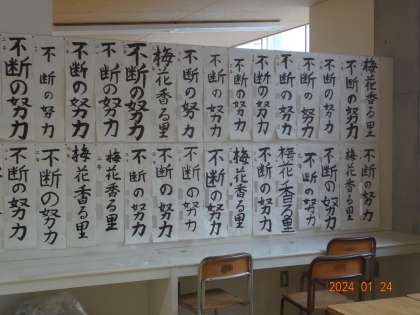 梅花香る里
不断の努力
不断の努力
不断の努力
不断の努力
不断の努力
不断の努力
不断の努力
不断の努力
梅花香る里
不断の努力
不断の努力
不断の努力
不断の努力
不断の努力
不断の努力
梅花香る里
不断の努力
不断の努力
梅花香る里
不断の努力
梅花香る里
不断の努力
不断の努力
不断の努力
不断の努力
梅花香る里
梅花香る里
不断の努力
不断の努力
2024 01 24